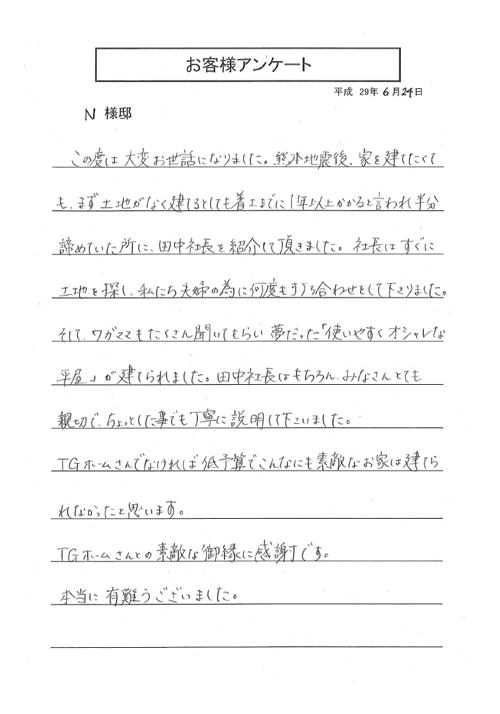 お客様アンケート
平成 29年 6月24日
N 様邸
この度は大変お世話になりました。熊本地震後、家を建てたくて
も、まず土地がなく建てるとしても着工までに1年以上かかると言われ半分
諦めていた所に、田中社長を紹介して頂きました。社長はすぐに
土地を探し、私たち夫婦の為に何度も打ち合わせをして下さりました。
そして、ワガママもたくさん聞いてもらい 夢だった「使いやすく オシャレな
平屋」が建てられました。田中社長はもちろん、みなさんとても
親切で、ちょっとした事でも丁寧に説明して下さいました。
TGホームさんでなければ低予算でこんなにも素敵なお家は建てら
れなかったと思います。
TGホームさんとの素敵な御縁に感謝です。
本当に有難うございました。